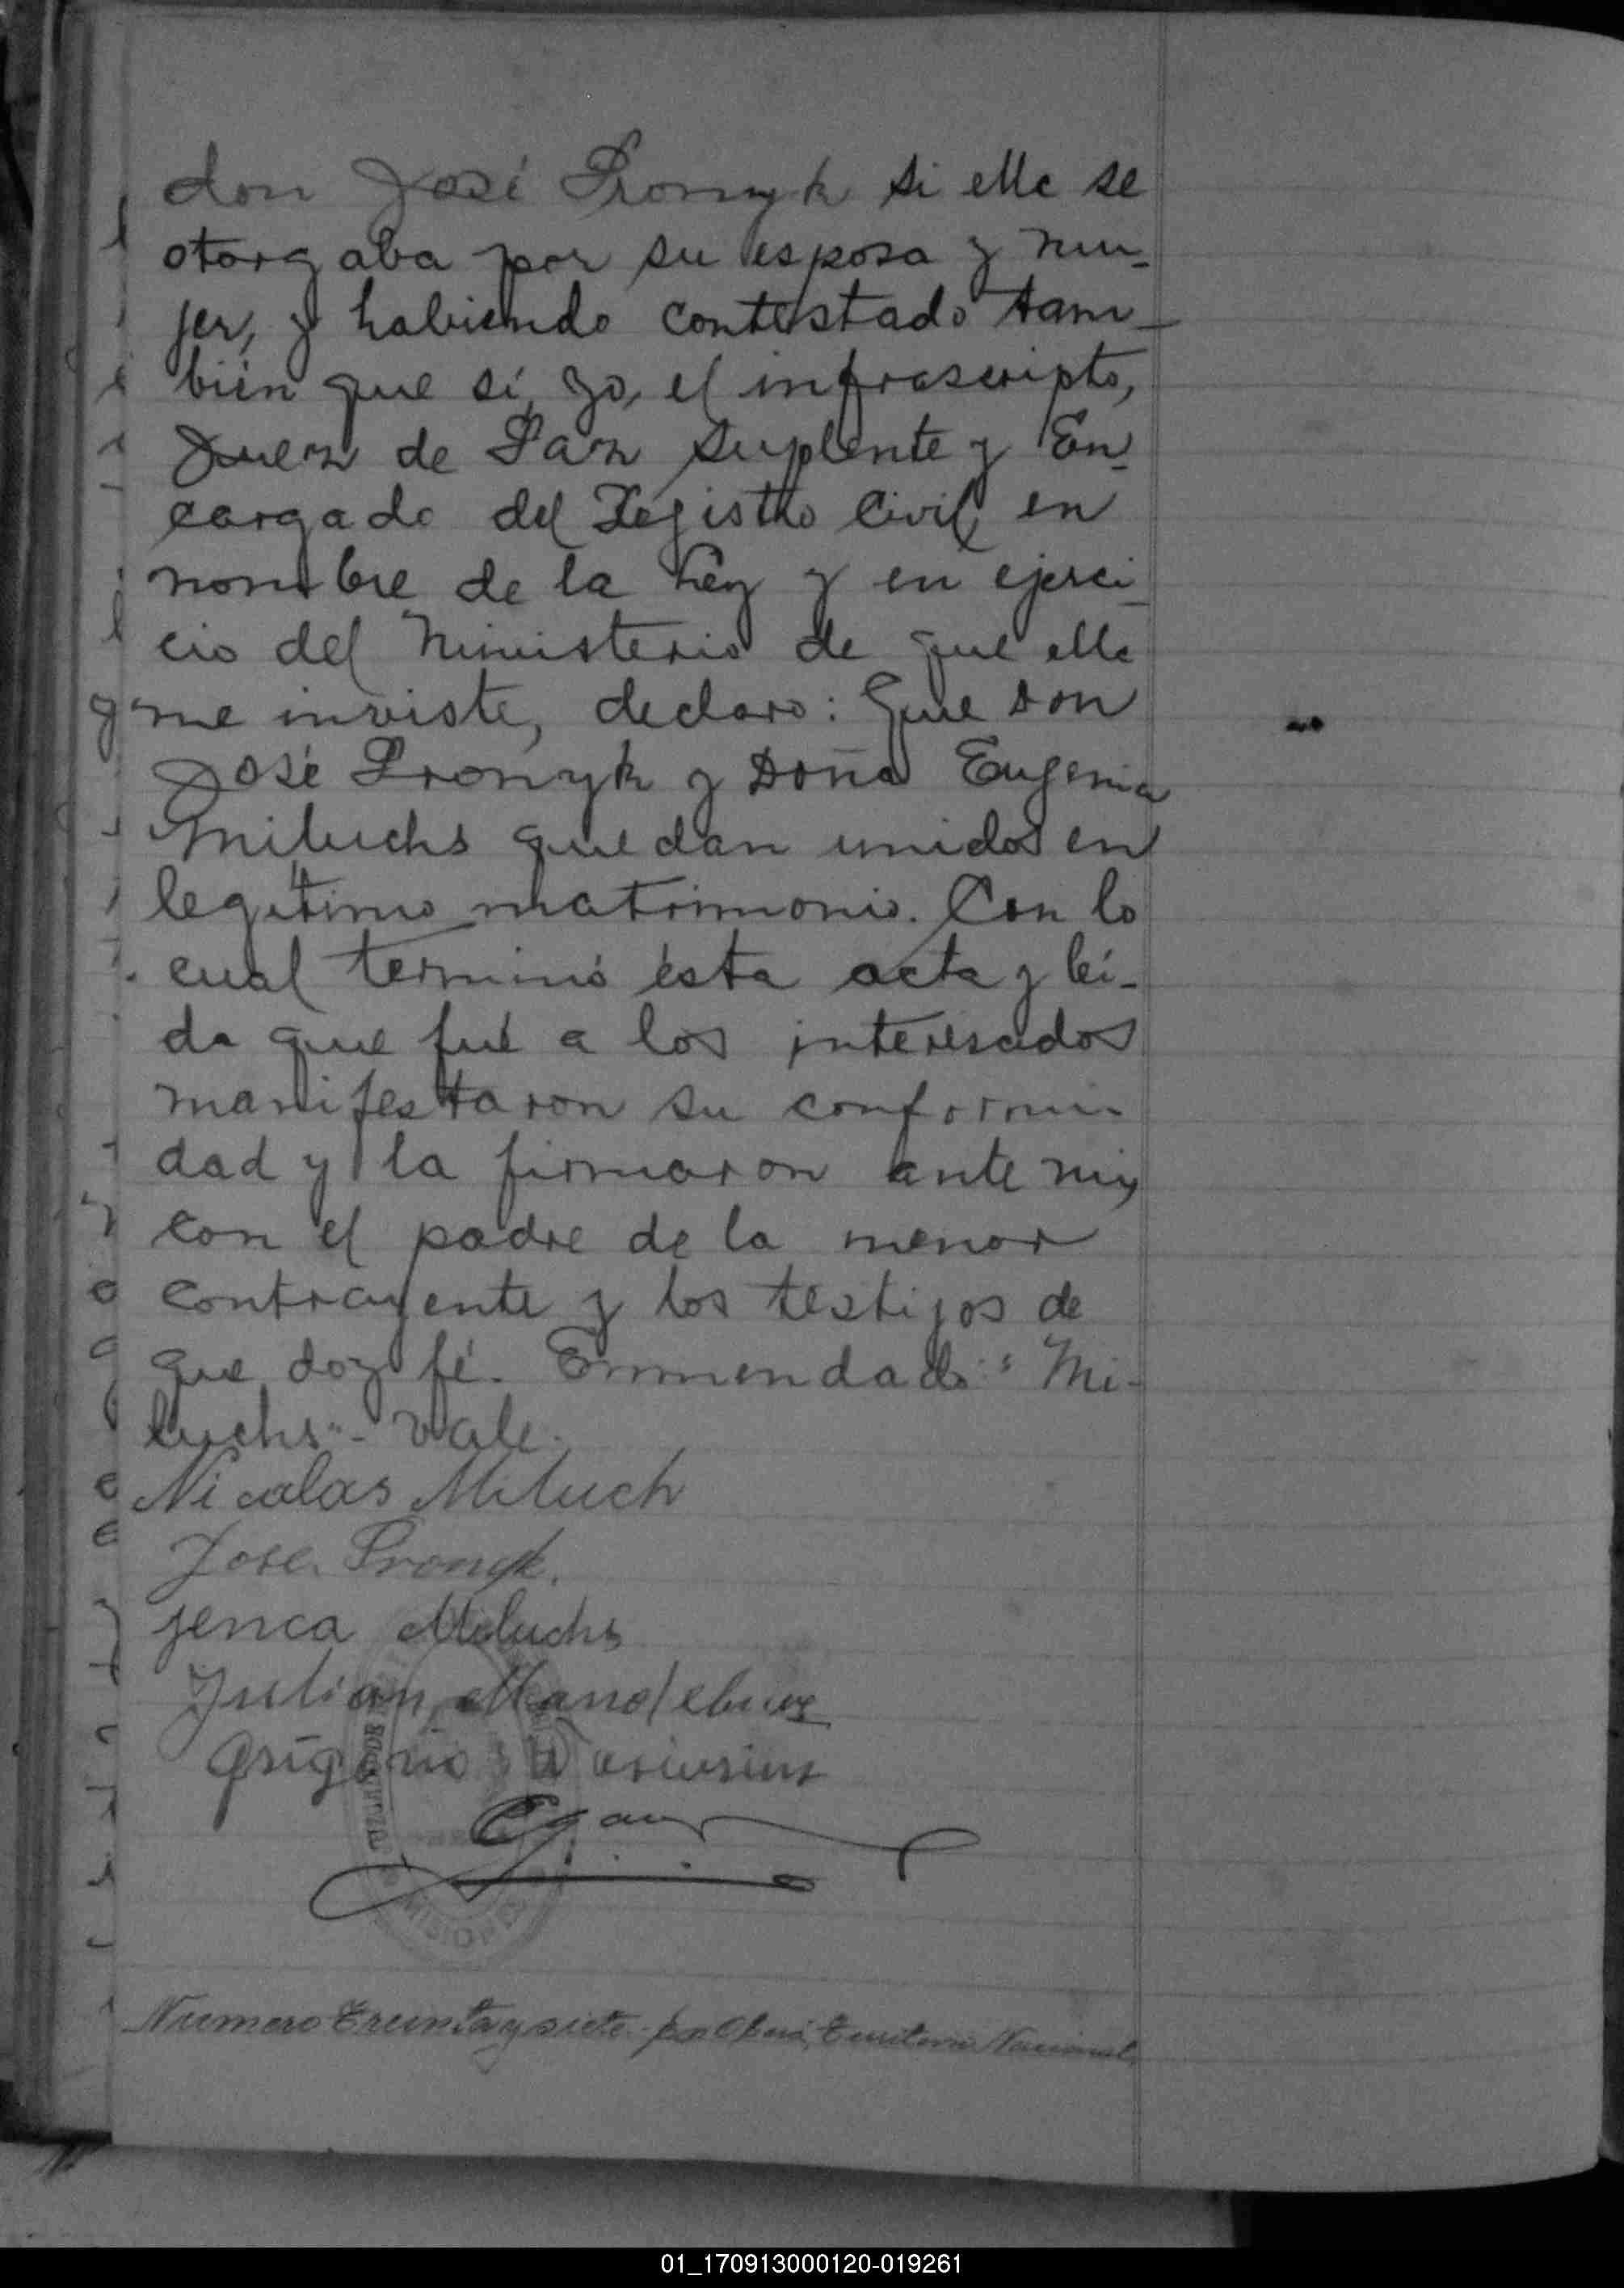 don José Pronyk si ella se
otorgaba por su esposa y mu-
jer, y habiendo contestado tam-
bién que sí, yo, el infrascripto,
Juez de Paz Suplente y En-
cargado del Registro Civil, en
nombre de la Ley y en ejerci-
cio del Ministerio de que ella
me inviste, declaro: Que don
José Pronyk y Doña Eugenia
Miluchs quedan unidos en
legítimo matrimonio. Con lo
cual terminó ésta acta y leí-
da que fué a los interesados
manifestaron su conformi-
dad y la firmaron ante mí,
con el padre de la menor
contrayente y los testigos de
que doy fé. Enmendado: "Mi-
luchs"- Vale.
Nicolas Miluch
Jose Pronyk.
jenca Miluchs
Julian
Grigorio
MISIONES
Numero Treinta y siete. Territorio Nacional
01_170913000120-019261